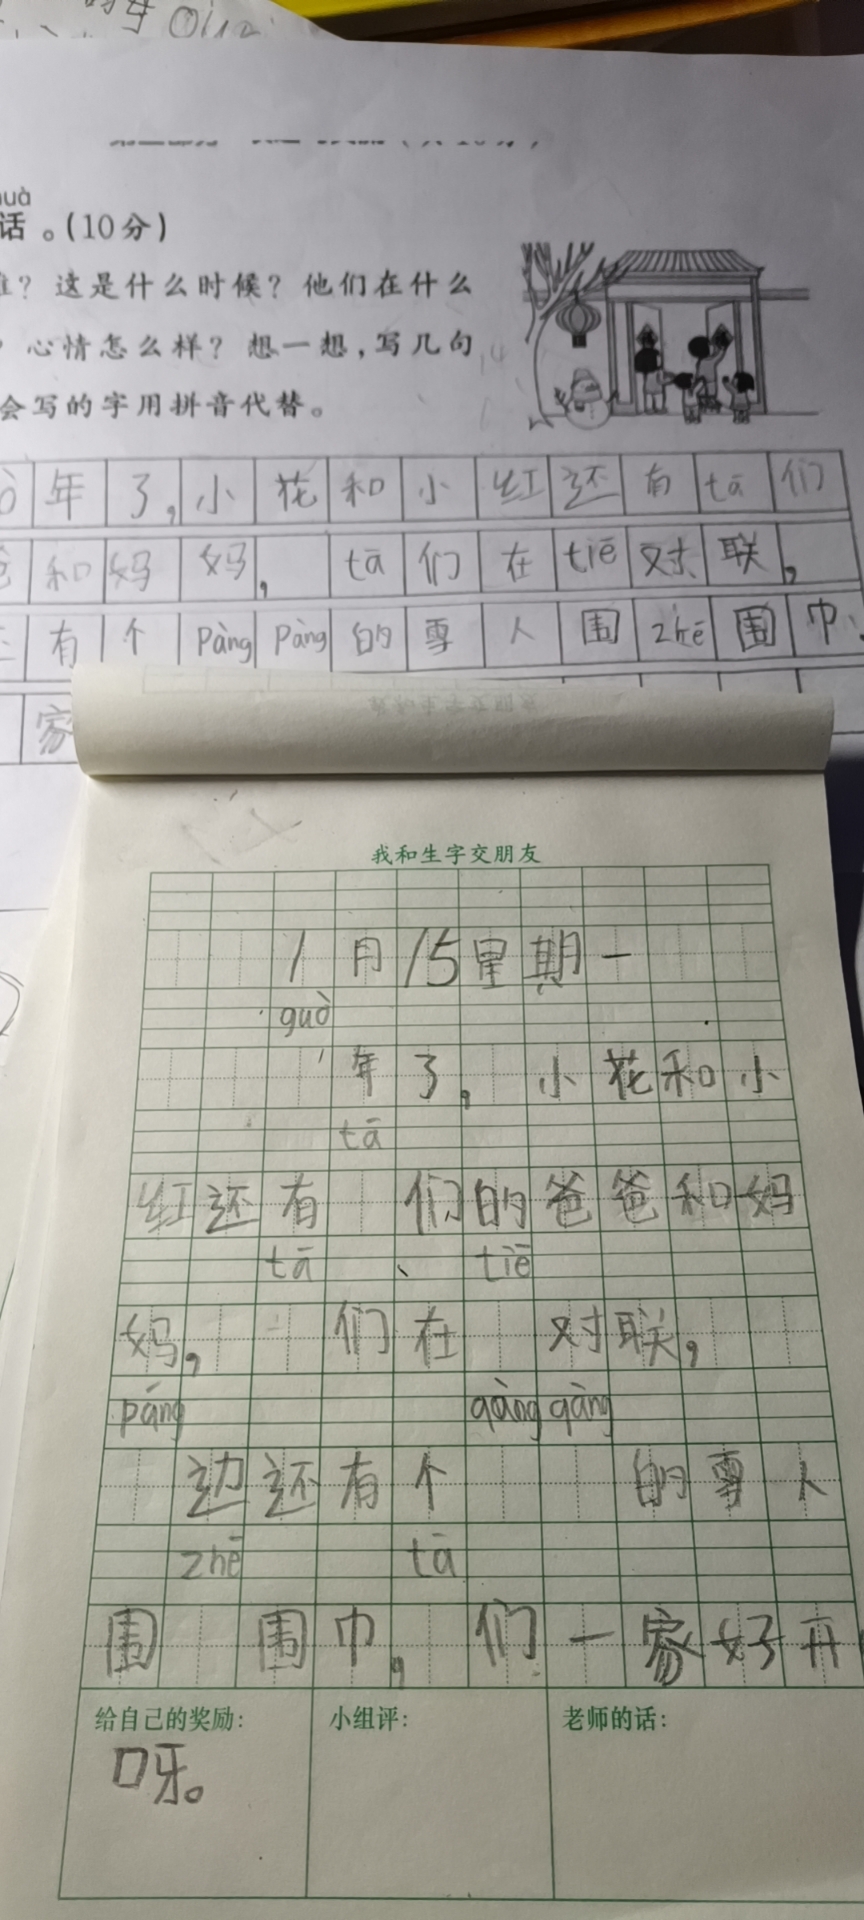 话。(10分)
？这是什么时候？他们在什么
心情怎么样？想一想，写几句
会写的字用拼音代替。
年了，小花和小红还有tā们
和妈妈，tā们在tiē对联，
有个pàng pàng的雪人围zhē围巾，
家
我和生字交朋友
1月15星期一
guò
年了，小花和小
tā
红还有 们的爸爸和妈
tā 、 tiē
妈， 们在 对联，
páng qàng qàng
边还有个 的雪人
zhē tā
围 围巾， 们一家好开
给自己的奖励： 小组评： 老师的话：
口呀。